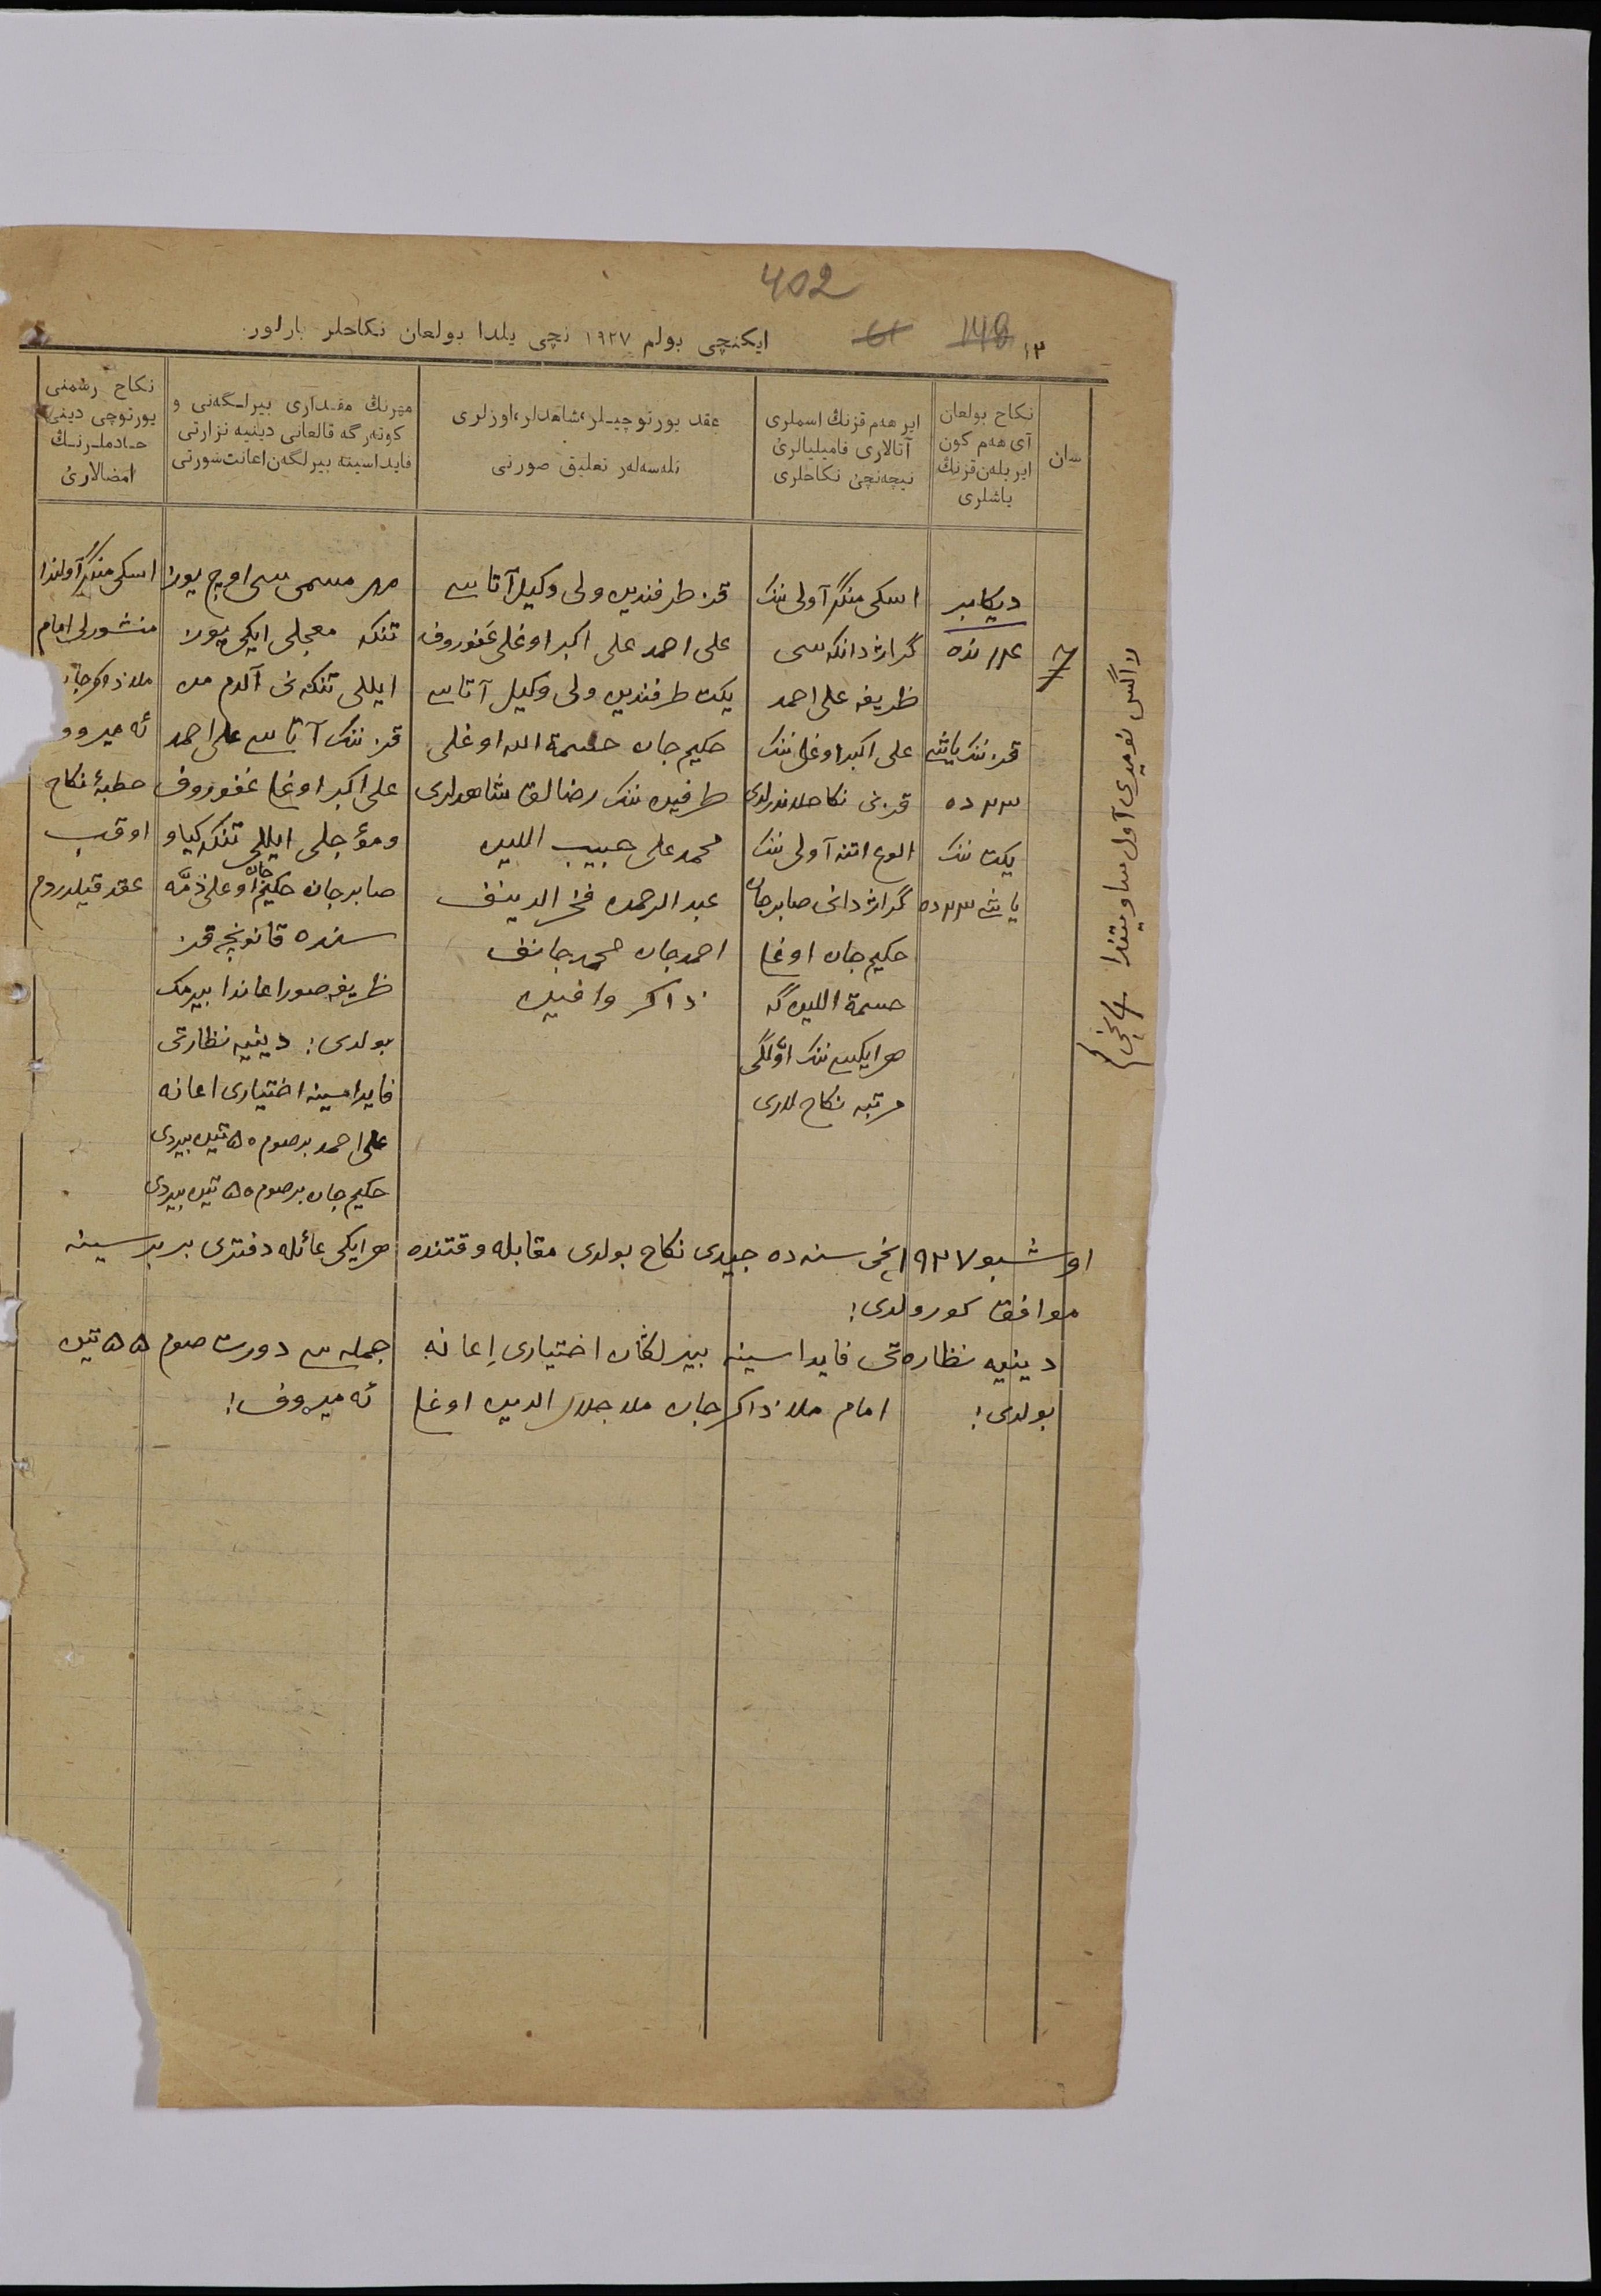 402
١٢ 148 61
ایکنچی بولم ١٩٢٧ نچی یلدا بولعان نکاحلر بارلور.
سان
نکاح بولعان
آی هەم کون
ایر بلەن قزنڭ
یاشلری
ایر هەم قزنڭ اسملری
آتالاری فامیلیالری
نیچەنچی نکاحلری
عقد یورتوچیلر، شاهدلر، اوزلری
نلەسەلەر تعلیق صورتی
مهرنڭ مقداری بیرلگەنی و
کوتەرگە قالعانی دینیه نزارتی
فایداسینه بیرلگەن اعانت صورتی
نکاح رسمنی
یورتوچی دینی
خادملرنڭ
امضالاری
7
دیکابر
قزننک یاشی
٢٢ ده
یکت ننک
یاشی ٢٢ ده
اسکی منگر آولی ننک
گراژدانکه سی
ظریفه علی احمد
علی اکبر اوغلی ننک
قزنی نکاحلاندردی
الوغ اتنه آولی ننک
گراژدانی صابرجان
حکیم جان اوغلی
حسمة اللین گه
هر ایکیسی ننک اوّلگی
مرتبه نکاحلاری
قز طرفندین ولی وکیل آتاسی
علی احمد علی اکبر اوغلی غفوروف
یکت طرفندین ولی وکیل آتاسی
حکیم جان حسمة الله اوغلی
طرفین ننک رضالق شاهدلری
محمد علی حبیب اللین
عبد الرحمن فخر الدینف
احمدجان محمدجانف
ذاکر وافین
مهر مسمی سی اوچ یوز
تنکه معجلی ایکی یوز
ایللی تنکه نی آلدم من
قز ننک آتاسی علی احمد
علی اکبر اوغلی غفوروف
ومؤجلی ایللی تنکه کیاو
صابرجان حکیم جان اوغلی ذمّه
سنده قانونچه قز
ظریفه صوراعاندا بیرمک
بولدی؛ دینیه نظارتی
فایداسینه اختیاری اعانه
علی احمد بر صوم ٥٠ تین بیردی
حکیم جان بر صوم ٥٠ تین بیردی
اسکی منگر آولندا
منشورلی امام
ملا ذاکرجان
ئه میرو
خطبۀ نکاح
اوقب
عقد قیلدردم
اوشبو ١٩٢٧ نچی سنه ده جیدی نکاح بولدی مقابله وقتنده هر ایکی عائله دفتری بر برسینه
موافق کورولدی؛
دینیه نظاره تی فایداسینه بیرلگان اختیاری اِعانه جمله سی دورت صوم ٥٥ تین
بولدی؛ امام ملا ذاکرجان ملا جلال الدین اوغلی ئه میروف؛